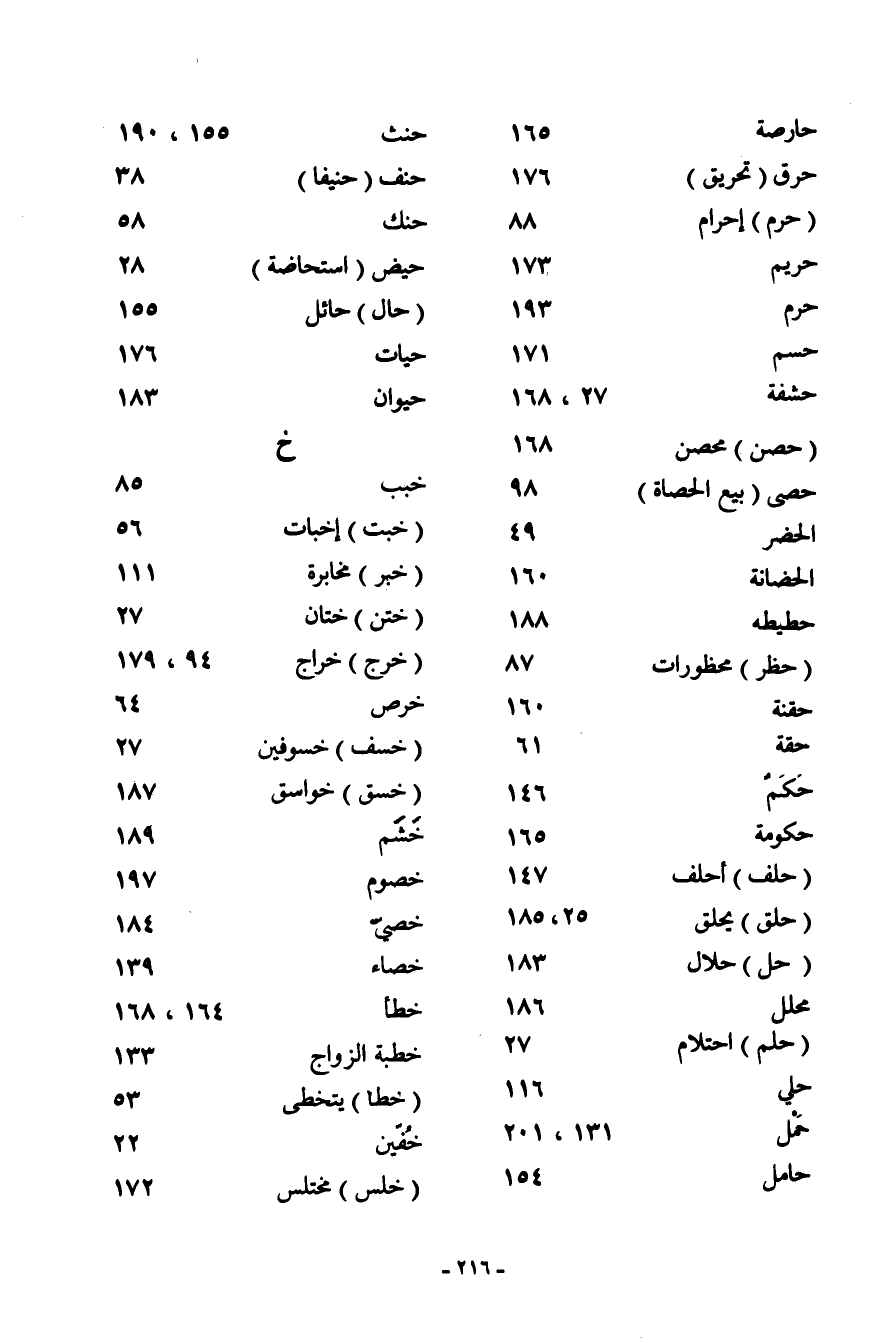 حارصة ١٦٥
حرق ( تحريق ) ١٧٦
( حرم ) إحرام ٨٨
حريم ١٧٣
حرم ١٩٣
حسم ١٧١
حشفة ٢٧ ، ١٦٨
( حصن ) محصن ١٦٨
حصى ( بيع الحصاة ) ٩٨
الحضر ٤٩
الحضانة ١٦٠
حطيطه ١٨٨
( حظر ) محظورات ٨٧
حقنة ١٦٠
حقة ٦١
حَكَمٌ ١٤٦
حكومة ١٦٥
( حلف ) أحلف ١٤٧
( حلق ) يحلق ٢٥ ، ١٨٥
( حل ) حلال ١٨٣
محلل ١٨٦
( حلم ) احتلام ٢٧
حلي ١١٦
حَمْل ١٣١ ، ٢٠١
حامل ١٥٤
حنث ١٥٥ ، ١٩٠
حنف ( حنيفا ) ٣٨
حنك ٥٨
حيض ( استحاضة ) ٢٨
( حال ) حائل ١٥٥
حيات ١٧٦
حيوان ١٨٣
خ
خبب ٨٥
( خبت ) إخبات ٥٦
( خبر ) مخابرة ١١١
( ختن ) ختان ٢٧
( خرج ) خراج ٩٤ ، ١٧٩
خرص ٦٤
( خسف ) خسوفين ٢٧
( خسق ) خواسق ١٨٧
خَشَم ١٨٩
خصوم ١٩٧
خصيّ ١٨٤
خصاء ١٣٩
خطأ ١٦٤ ، ١٦٨
خطبة الزواج ١٣٣
( خطا ) يتخطى ٥٣
خُفّين ٢٢
( خلس ) مختلس ١٧٢
- ٢١٦ -